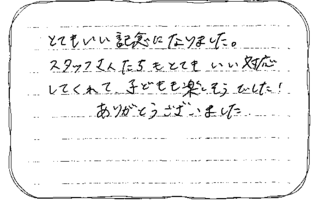 とてもいい記念になりました。
スタッフさんたちもとてもいい対応
してくれて、子どもも楽しそうでした！
ありがとうございました